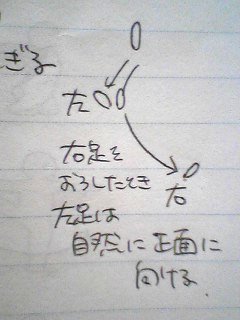 ぎる
左
右
右足を
おろしたとき
左足は
自然に正面に
向ける。